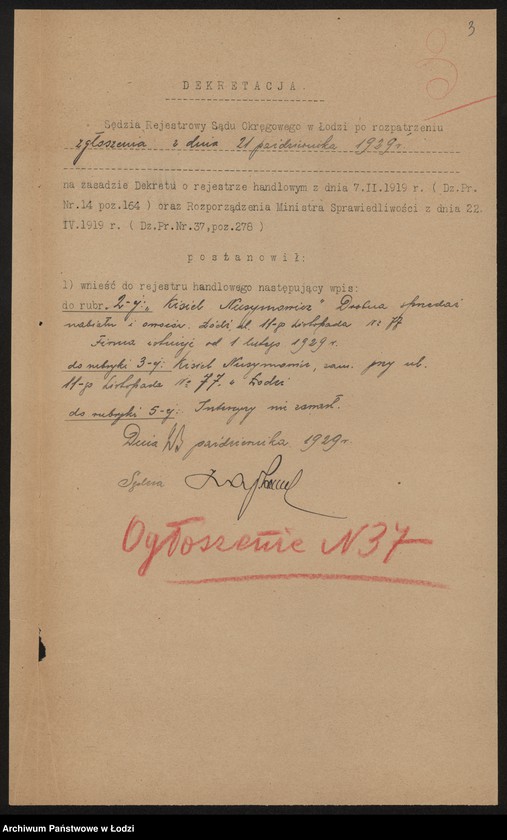 3
DEKRETACJA.
Sędzia Rejestrowy Sądu Okręgowego w Łodzi po rozpatrzeniu
zgłoszenia z dnia 21 października 1929 r.
na zasadzie Dekretu o rejestrze handlowym z dnia 7.II.1919 r. ( Dz.Pr.
Nr.14 poz.164 ) oraz Rozporządzenia Ministra Sprawiedliwości z dnia 22.
IV.1919 r. ( Dz.Pr.Nr.37,poz.278 )
postanowił:
1) wnieść do rejestru handlowego następujący wpis:
do rubr. 2-j: „Kisiel Nusynowicz" Drobna sprzedaż
nabiału i owoców. Łódź ul. 11-go Listopada № 77
Firma istnieje od 1 lutego 1929 r.
do rubryki 3-j: Kisiel Nusynowicz, zam. przy ul.
11-go Listopada № 77. w Łodzi
do rubryki 5-j: Intercyzy nie zawarł.
Dnia 23 października 1929 r.
Sędzia
Ogłoszenie N 37
Archiwum Państwowe w Łodzi